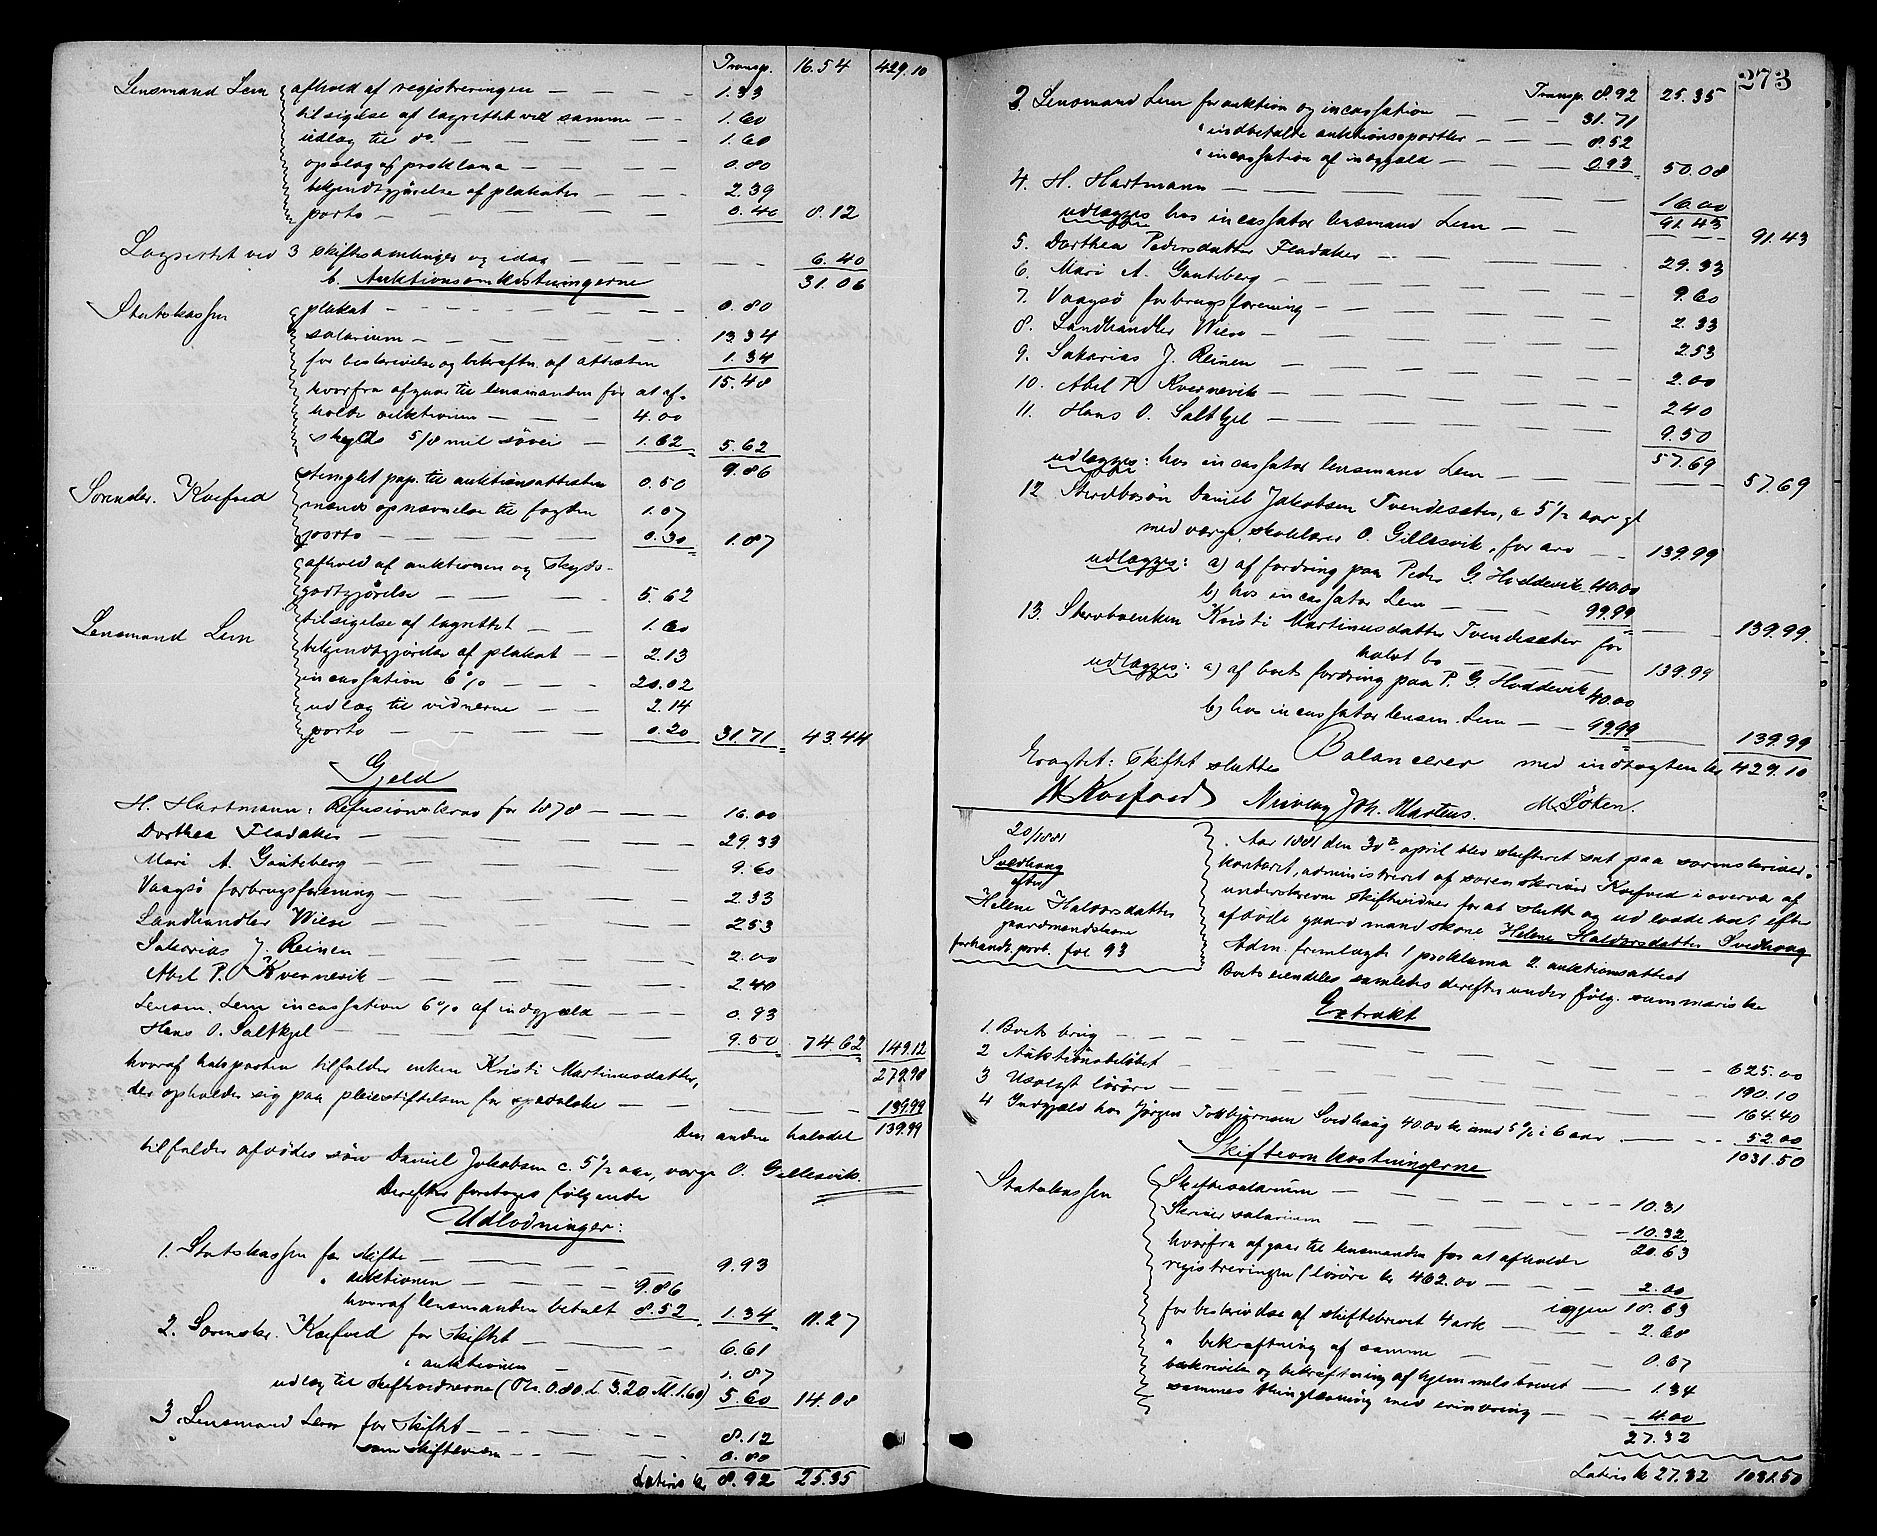 Transp. 16.54 429.10
Lensmand Lem afhold af registreringen — 1.33
tilsigelse af lagrettet ved samme — 1.60
udlæg til do. — 1.60
opslag af proklama — 0.80
bekjendtgjørelse af plakater — 2.39
porto — 0.40 8.12
Lagrettet ved 3 skiftesamlinger og idag — 6.40
b. Auktionsomkostningerne 31.06
Statskassen plakat — 0.80
salarium — 13.34
for beskrivelse og bekræftn. af attesten 1.34
15.48
hvorfra afgaar til lensmanden for at af-
holde auktionen — 4.00
skyds 5/8 mil søvei — 1.62 5.62
9.86
Sorenskr. Koefoed stemplet pap. til auktionsattesten 0.50
mands opnævnelse til fogden 1.07
porto — 0.30 1.87
afhold af auktionen og skyds-
godtgjørelse — 5.62
Lensmand Lem tilsigelse af lagrettet — 1.60
bekjendtgjørelse af plakat — 2.13
incassation 6% — 20.02
udlæg til vidnerne — 2.14
porto — 0.20 31.71 43.44
Gjeld
H. Hartmann: Refusionskrav for 1878 — 16.00
Dorthea Fladaker — 29.33
Mari A. Gauteberg — 9.60
Vaagsø forbrugsforening — 2.33
Landhandler Wiese — 2.53
Sakarias J. Reinen — 2.00
Abel P. Kvernevik — 2.40
Lensm. Lem incassation 6% af indgjæld — 0.93
Hans O. Saltkjel — 9.50 74.62 149.12
hvoraf halvparten tilfalder enken Kristi Martinusdatter, 279.98
der opholder sig paa pleiestiftelsen for spedalske — 139.99
Den anden halvdel 139.99
tilfalder afdødes søn Daniel Jakobsen c. 5 1/2 aar, værge O. Gillesvik.
Derefter foretoges følgende
Udlodninger:
1. Statskassen for skifte — 9.93
" auktionen — 9.86
hvoraf lensmanden betalt 8.52 1.34 11.27
2. Sorenskr. Koefoed for skiftet — 6.61
" auktionen — 1.87
udlæg til skiftevidnerne (Ns. 0.80. L. 3.20 M. 1.60) 5.60 14.08
3. Lensmand Lem for skiftet — 8.12
som skifteven — 0.80
Lateris kr 8.92 25.35
273
Transp. 8.92 25.35
3 Lensmand Lem for auktion og incassation — 31.71
" indbetalte auktionsportler — 8.52
" incassation af indgjæld — 0.93 50.08
4. H. Hartmann — 16.00
udlægges hos incassator lensmand Lem — 91.43 91.43
5. Dorthea Pedersdatter Fladaker — 29.33
6. Mari A. Gauteberg — 9.60
7. Vaagsø forbrugsforening — 2.33
8. Landhandler Wiese — 2.53
9. Sakarias J. Reinen — 2.00
10. Abel P. Kvernevik — 2.40
11. Hans O. Saltkjel — 9.50
57.69
udlægges: hos incassator lensmand Lem — 57.69
12 Stervbosøn Daniel Jakobsen Tvendesæter, c 5 1/2 aar gl
med værge, skolelærer O. Gillesvik, for arv — 139.99
udlægges: a) af fordring paa Peder G. Hoddevik 40.00
b) hos incassator Lem — 99.99 139.99
13. Stervboenken Kristi Martinusdatter Tvendesæter for
halvt bo — 139.99
udlægges: a) af boets fordring paa P. G. Hoddevik 40.00
b) hos incassator lensm. Lem — 99.99 139.99
Balancerer med indtægten kr 429.10
Eragtet: Skiftet sluttes
Koefoed Joh. Martens. M. Løken.
20/1881
Svedhaug
efter
Helene Halvorsdatter
gaardmandskone
forhandl. prot. fol. 93
Aar 1881 den 30te april blev skifteret sat paa sorenskriver-
kontoret, administreret af sorenskriver Koefoed i overvær af
underskrevne skiftevidner for at slutte og udlodde boet efter
afdøde gaardmandskone Helene Halvorsdatter Svedhaug
Adm. fremlagde 1 proklama 2. auktionsattest
Boets eiendele samledes derefter under følg. summariske
Extrakt
1. Boets brug — 625.00
2 Auktionsbeløbet — 190.10
3 Usolgt løsøre — 164.40
4 Indgjæld hos Jørgen Torbjørnsen Svedhaug 40.00 kr med 5% i 6 aar — 52.00
1031.50
Skifteomkostningerne
Statskassen Skiftesalarium — 10.31
Skriver salarium — 10.32
20.63
hvorfra afgaar til lensmanden for at afholde
registreringen (løsøre kr 402.00 — 2.00
igjen 18.63
for beskrivelse af skiftebrevet 4 ark — 2.68
" bekræftning af samme — 0.67
beskrivelse og bekræftning af hjemmelsbrevet — 1.34
sammes thinglæsning med erindring — 4.00
27.32
Lateris kr 27.32 1031.50